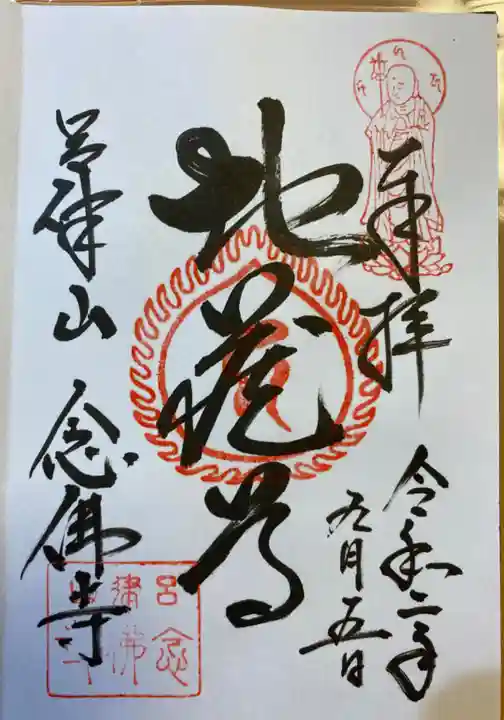 奉拝
令和二年
五月五日
地蔵尊
呂律山 念佛寺
呂律山
念佛寺